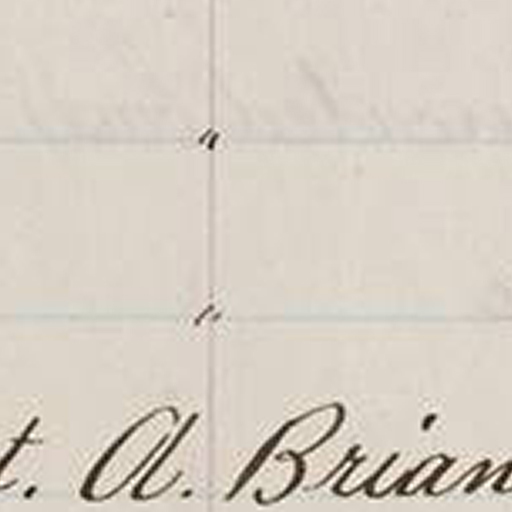 "
"
t. A. Brian